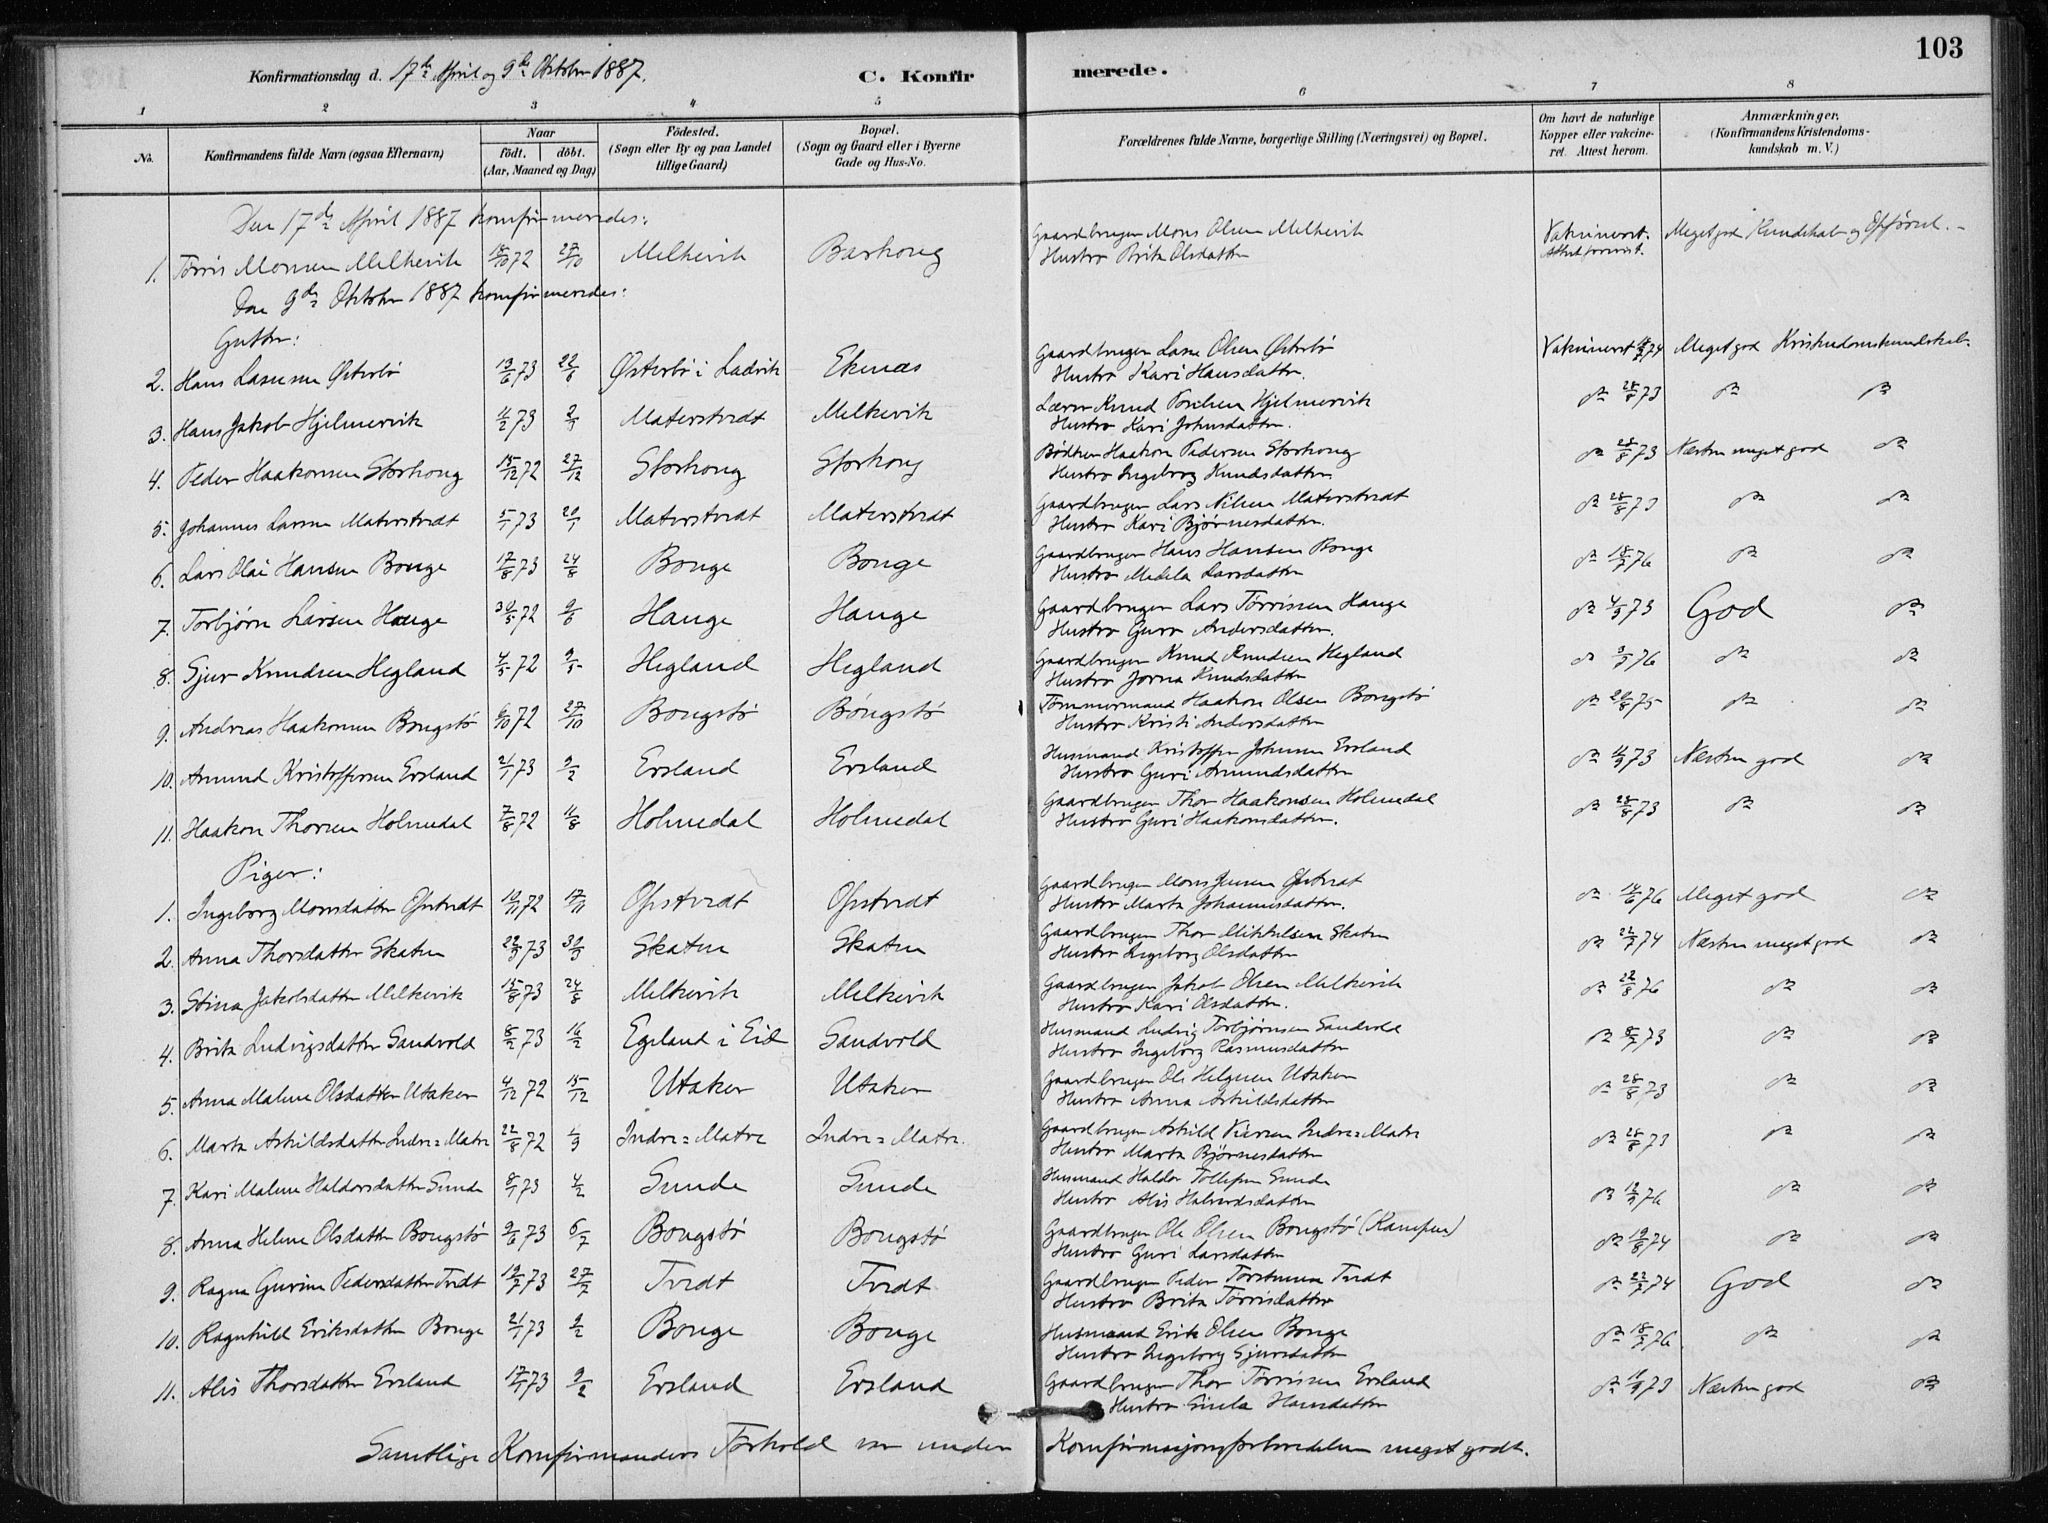 103
Konfirmationsdag d. 17de April og 9de Oktober 1887. C. Konfirmerede.
1 2 3 4 5 6 7 8
No. Konfirmandens fulde Navn (ogsaa Efternavn) Naar født. døbt. (Aar, Maaned og Dag) Fødested. (Sogn eller By og paa Landet tillige Gaard) Bopæl. (Sogn og Gaard eller i Byerne Gade og Hus-No. Forældrenes fulde Navne, borgerlige Stilling (Næringsvei) og Bopæl. Om havt de naturlige Kopper eller vakcineret. Attest herom. Anmærkninger. (Konfirmandens Kristendomskundskab m. V.)
Den 17de April 1887 konfirmeredes:
1. Tørris Monsen Melkevik 15/10 72 27/10 Melkevik Barkoug Gaardbruger Mons Olsen Melkevik Vakcineret. Meget god Kundskab og Opførsel.
Hustro Brita Olsdatter Attest forevist.
Den 9de Oktober 1887 konfirmeredes:
Gutter:
2. Hans Lassesen Østerbø 13/6 73 22/8 Østerbø i Ladvik Ekenæs Gaardbruger Lasse Olsen Østerbø Vakcineret 74 Meget god Kristendomskundskab
Hustro Kari Hansdatter.
3. Hans Jakob Hjelmervik 4/2 73 Materstvedt Melkevik Lærer Knud Hjelmervik do 28/8 73 do do
Hustro Kari Johnsdatter.
4. Peder Haakonsen Storhoug 15/12 72 27/12 Storhoug Storhoug Bødker Haakon Pedersen Storhoug do 28/8 73 Næsten meget god do
Hustro Ingeborg Knudsdatter.
5. Johannes Larsen Materstvedt 5/1 73 20/1 Materstvedt Materstvedt Gaardbruger Lars Nilsen Materstvedt do 28/8 73 do do
Hustro Kari Bjørnesdatter.
6. Lars Olai Hansen Bouge 17/8 73 24/8 Bouge Bouge Gaardbruger Hans Hansen Bouge do 18/7 76 do do
Hustro Medela Larsdatter
7. Torbjørn Larsen Hauge 30/5 72 9/6 Hauge Hauge Gaardbruger Lars Tørrissen Hauge do 4/9 73 God do
Hustro Guro Andersdatter.
8. Sjur Knudsen Hegland 4/5 72 9/5 Hegland Hegland Gaardbruger Knud Knudsen Hegland do 76 do do
Hustro Jorna Knudsdatter
9. Andreas Haakonsen Bougstø 6/10 72 27/10 Bougstø Bougstø Tømmermand Haakon Olsen Bougstø do 20/8 75 do do
Hustro Kristi Andersdatter
10. Amund Kristoffersen Ersland 21/1 73 9/2 Ersland Ersland Husmand Kristoffer Johnsen Ersland do 4/9 73 Næsten god do
Hustro Guri Amundsdatter
11. Haakon Thorsen Holmedal 7/8 72 11/8 Holmedal Holmedal Gaardbruger Thor Haakonsen Holmedal do 28/8 73 do do
Hustro Guri Haakonsdatter.
Piger:
1. Ingeborg Monsdatter Opstvedt 10/11 72 17/11 Opstvedt Opstvedt Gaardbruger Mons Jensen Opstvedt do 14/6 76 Meget god do
Hustro Marta Johannesdatter.
2. Anna Thorsdatter Skaten 73 Skaten Skaten Gaardbruger Thor Mikkelsen Skaten do 22/7 74 Næsten meget god do
Hustro Ingeborg Olsdatter
3. Stina Jakobsdatter Melkevik 15/8 73 24/8 Melkevik Melkevik Gaardbruger Jakob Olsen Melkevik do 22/8 76 do do
Hustro Kari Olsdatter.
4. Brita Ludvigsdatter Sandvold 8/2 73 16/2 Egeland i Eid Sandvold Husmand Ludvig Torbjørnsen Sandvold do 73 do do
Hustro Ingeborg Rasmusdatter
5. Anna Malene Olsdatter Utaker 4/12 72 15/12 Utaker Utaker Gaardbruger Ole Helgesen Utaker do 28/8 73 do do
Hustro Anna Askildsdatter
6. Marta Askildsdatter Indre=Matre 22/8 72 1/9 Indre=Matre Indre=Matre. Gaardbruger Askild Iversen Indre=Matre do 28/8 73 do do
Hustro Marta Bjørnesdatter
7. Kari Malene Haldorsdatter Sunde 8/1 73 4/2 Sunde Sunde Husmand Haldor Tollefsen Sunde do 76 do do
Hustro Alis Halvordsdatter
8. Anna Helene Olsdatter Bougstø 9/6 73 6/7 Bougstø Bougstø Gaardbruger Ole Olsen Bougstø (Kampen) do 19/8 74 do do
Hustro Guri Larsdatter
9. Ragna Gurine Pedersdatter Tvedt 19/7 73 27/7 Tvedt Tvedt Gaardbruger Peder Torstensen Tvedt do 22/7 74 God do
Hustro Brita Tørrisdatter
10. Ragnhild Eriksdatter Bouge 21/1 73 9/2 Bouge Bouge Husmand Erik Olsen Bouge do 18/7 76 do do
Hustro Ingeborg Sjursdatter
11. Alis Thorsdatter Ersland 17/1 73 9/2 Ersland Ersland Gaardbruger Thor Tørrissen Ersland do 73 Næsten god do
Hustro Hansdatter
Samtlige Konfirmanders Forhold var under Konfirmasjonsforberedelsen meget godt.